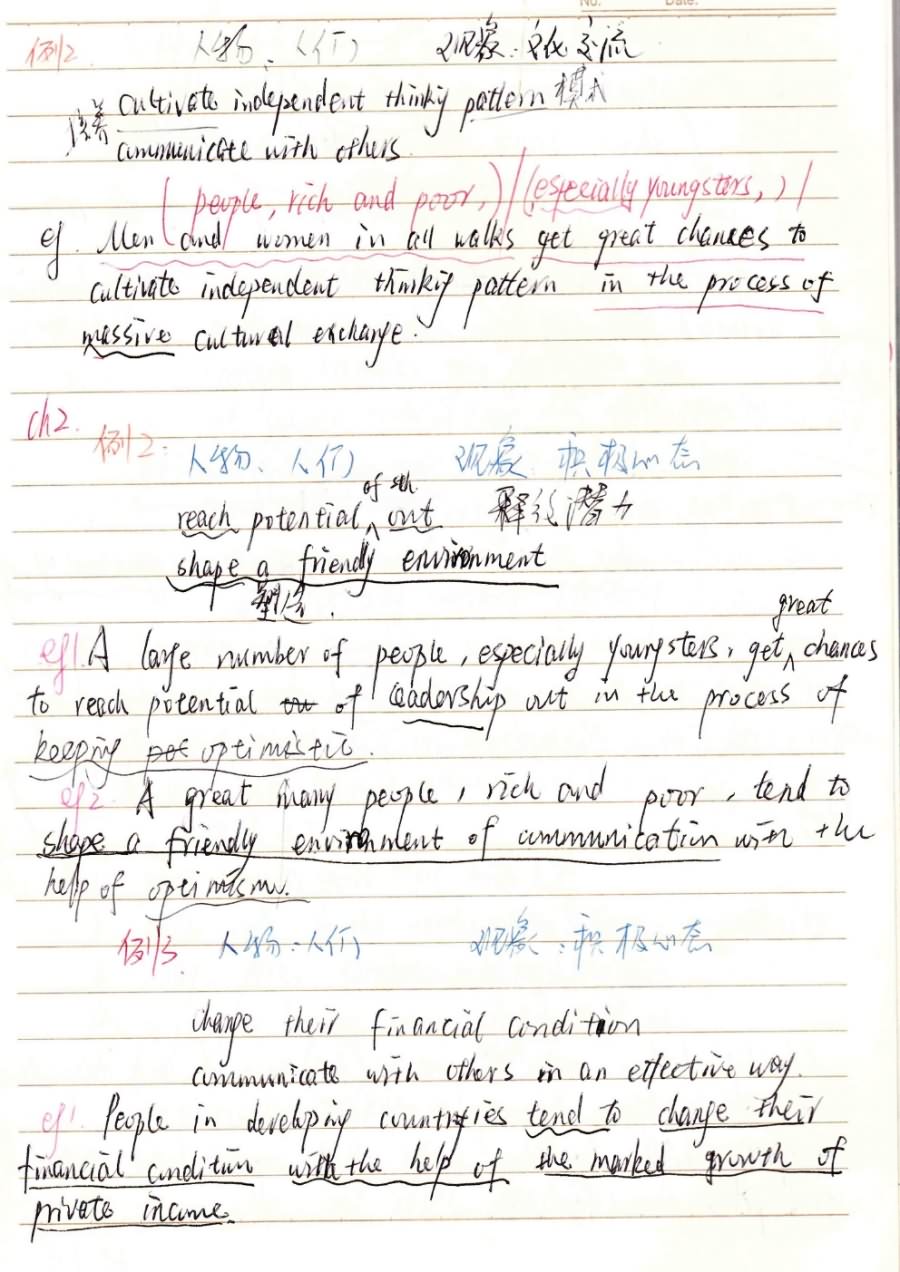 No. Date.
例2 人物:人们 现象:文化交流
培养 cultivate independent thinking pattern 模式
communicate with others.
(people, rich and poor,) / (especially youngsters,) /
eg. Men and women in all walks get great chances to
cultivate independent thinking pattern in the process of
massive cultural exchange.
ch2.
例2: 人物、人们 现象 积极心态
reach potential of sth out 释放潜力
shape a friendly environment
塑造.
eg1 A large number of people, especially youngsters, get great chances
to reach potential out of leadership out in the process of
keeping pot optimistic.
eg2. A great many people, rich and poor, tend to
shape a friendly environment of communication with the
help of optimism.
例3. 人物:人们 现象:积极心态
change their financial condition
communicate with others in an effective way.
eg1. People in developing countries tend to change their
financial condition with the help of the marked growth of
private income.